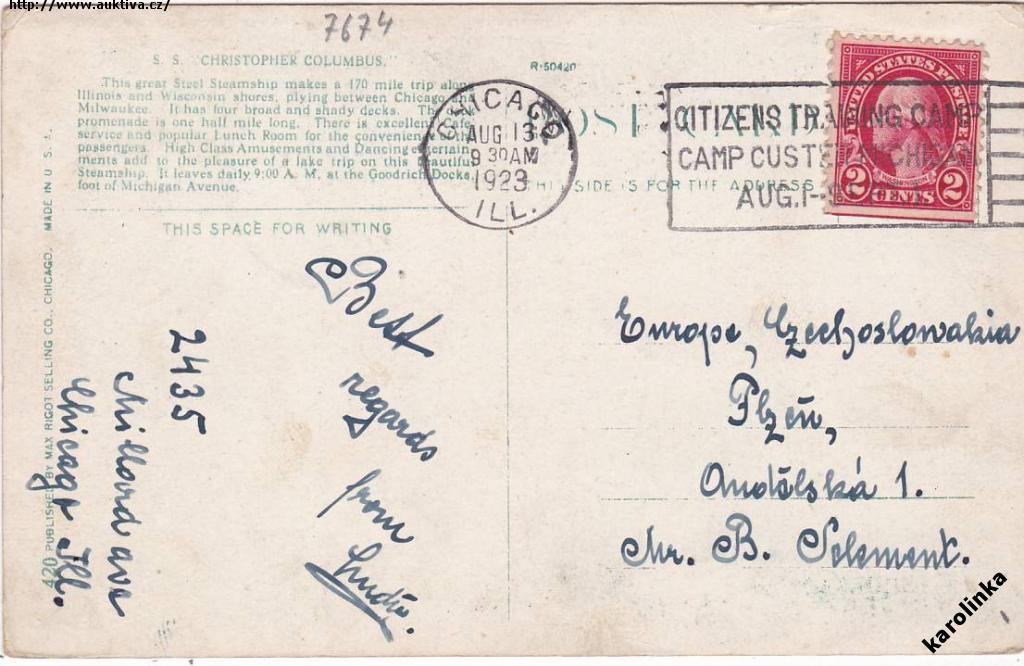 http://www.auktiva.cz/
7674
S. S. "CHRISTOPHER COLUMBUS."
This great Steel Steamship makes a 170 mile trip along
Illinois and Wisconsin shores, plying between Chicago and
Milwaukee. It has four broad and shady decks. The
promenade is one half mile long. There is excellent Cafe
service and popular Lunch Room for the convenience of the
passengers. High Class Amusements and Dancing entertain-
ments add to the pleasure of a lake trip on this beautiful
Steamship. It leaves daily 9:00 A. M. at the Goodrich Docks,
foot of Michigan Avenue.
THIS SPACE FOR WRITING
R-50420
POST CARD
THIS SIDE IS FOR THE ADDRESS
CHICAGO
AUG 13
9 30 AM
1923
ILL.
CITIZENS TRAINING CAMP
CAMP CUSTER MICHIGAN
AUG. 1-
UNITED STATES POSTAGE
WASHINGTON
2 CENTS 2
420 PUBLISHED BY MAX RIGOT SELLING CO., CHICAGO. MADE IN U. S. A.
Best
regards
from
2435
Millard ave
Chicago Ill.
Europe, Czechoslowakia
Plzeň,
Andělská 1.
Mr. B. Selement.
karolinka